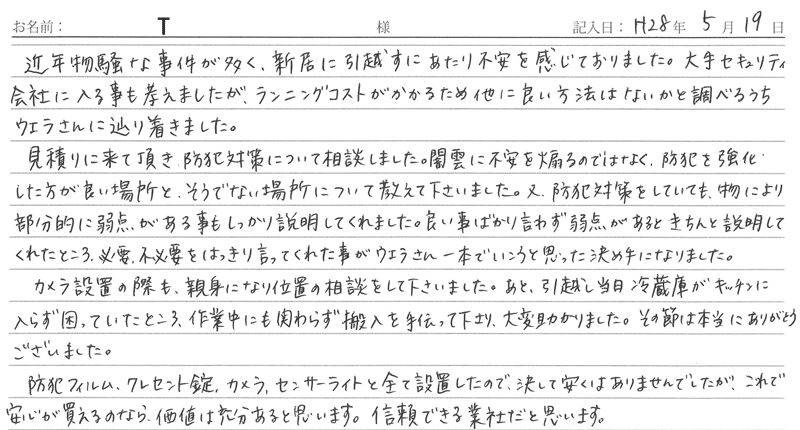 お名前： T 様 記入日： H28年 5月 19日
近年物騒な事件が多く、新居に引越すにあたり不安を感じておりました。大手セキュリティ
会社に入る事も考えましたが、ランニングコストがかかるため他に良い方法はないかと調べるうち
ウェラさんに辿り着きました。
見積りに来て頂き、防犯対策について相談しました。闇雲に不安を煽るのではなく、防犯を強化
した方が良い場所と、そうでない場所について教えて下さいました。又、防犯対策をしていても、物により
部分的に弱点がある事もしっかり説明してくれました。良い事ばかり言わず弱点があるときちんと説明して
くれたところ、必要、不必要をはっきり言ってくれた事がウェラさん一本でいこうと思った決め手になりました。
カメラ設置の際も、親身になり位置の相談をして下さいました。あと、引越し当日冷蔵庫がキッチンに
入らず困っていたところ、作業中にも関わらず搬入を手伝って下さり、大変助かりました。その節は本当にありがとう
ございました。
防犯フィルム、クレセント錠、カメラ、センサーライトと全て設置したので、決して安くはありませんでしたが、これで
安心が買えるのなら、価値は充分あると思います。信頼できる業社だと思います。